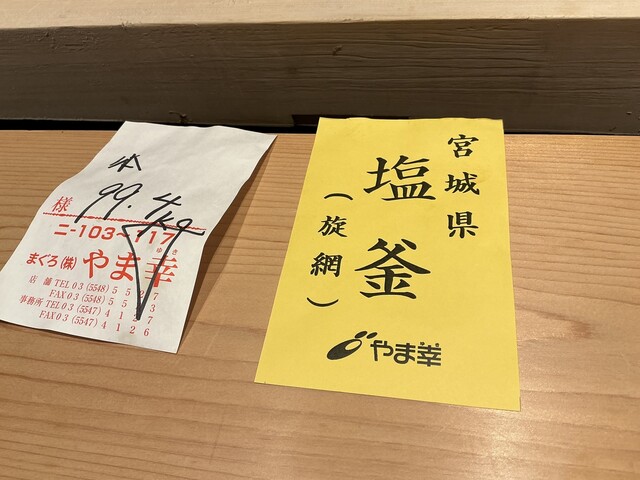 99.4kg
様
ニ-103~117
まぐろ(株)やま幸
ゆき
店舗 TEL 03 (5548) 5527
FAX 03 (5548) 553
事務所 TEL 03 (5547) 4127
FAX 03 (5547) 4126
宮城県
塩釜
(旋網)
やま幸